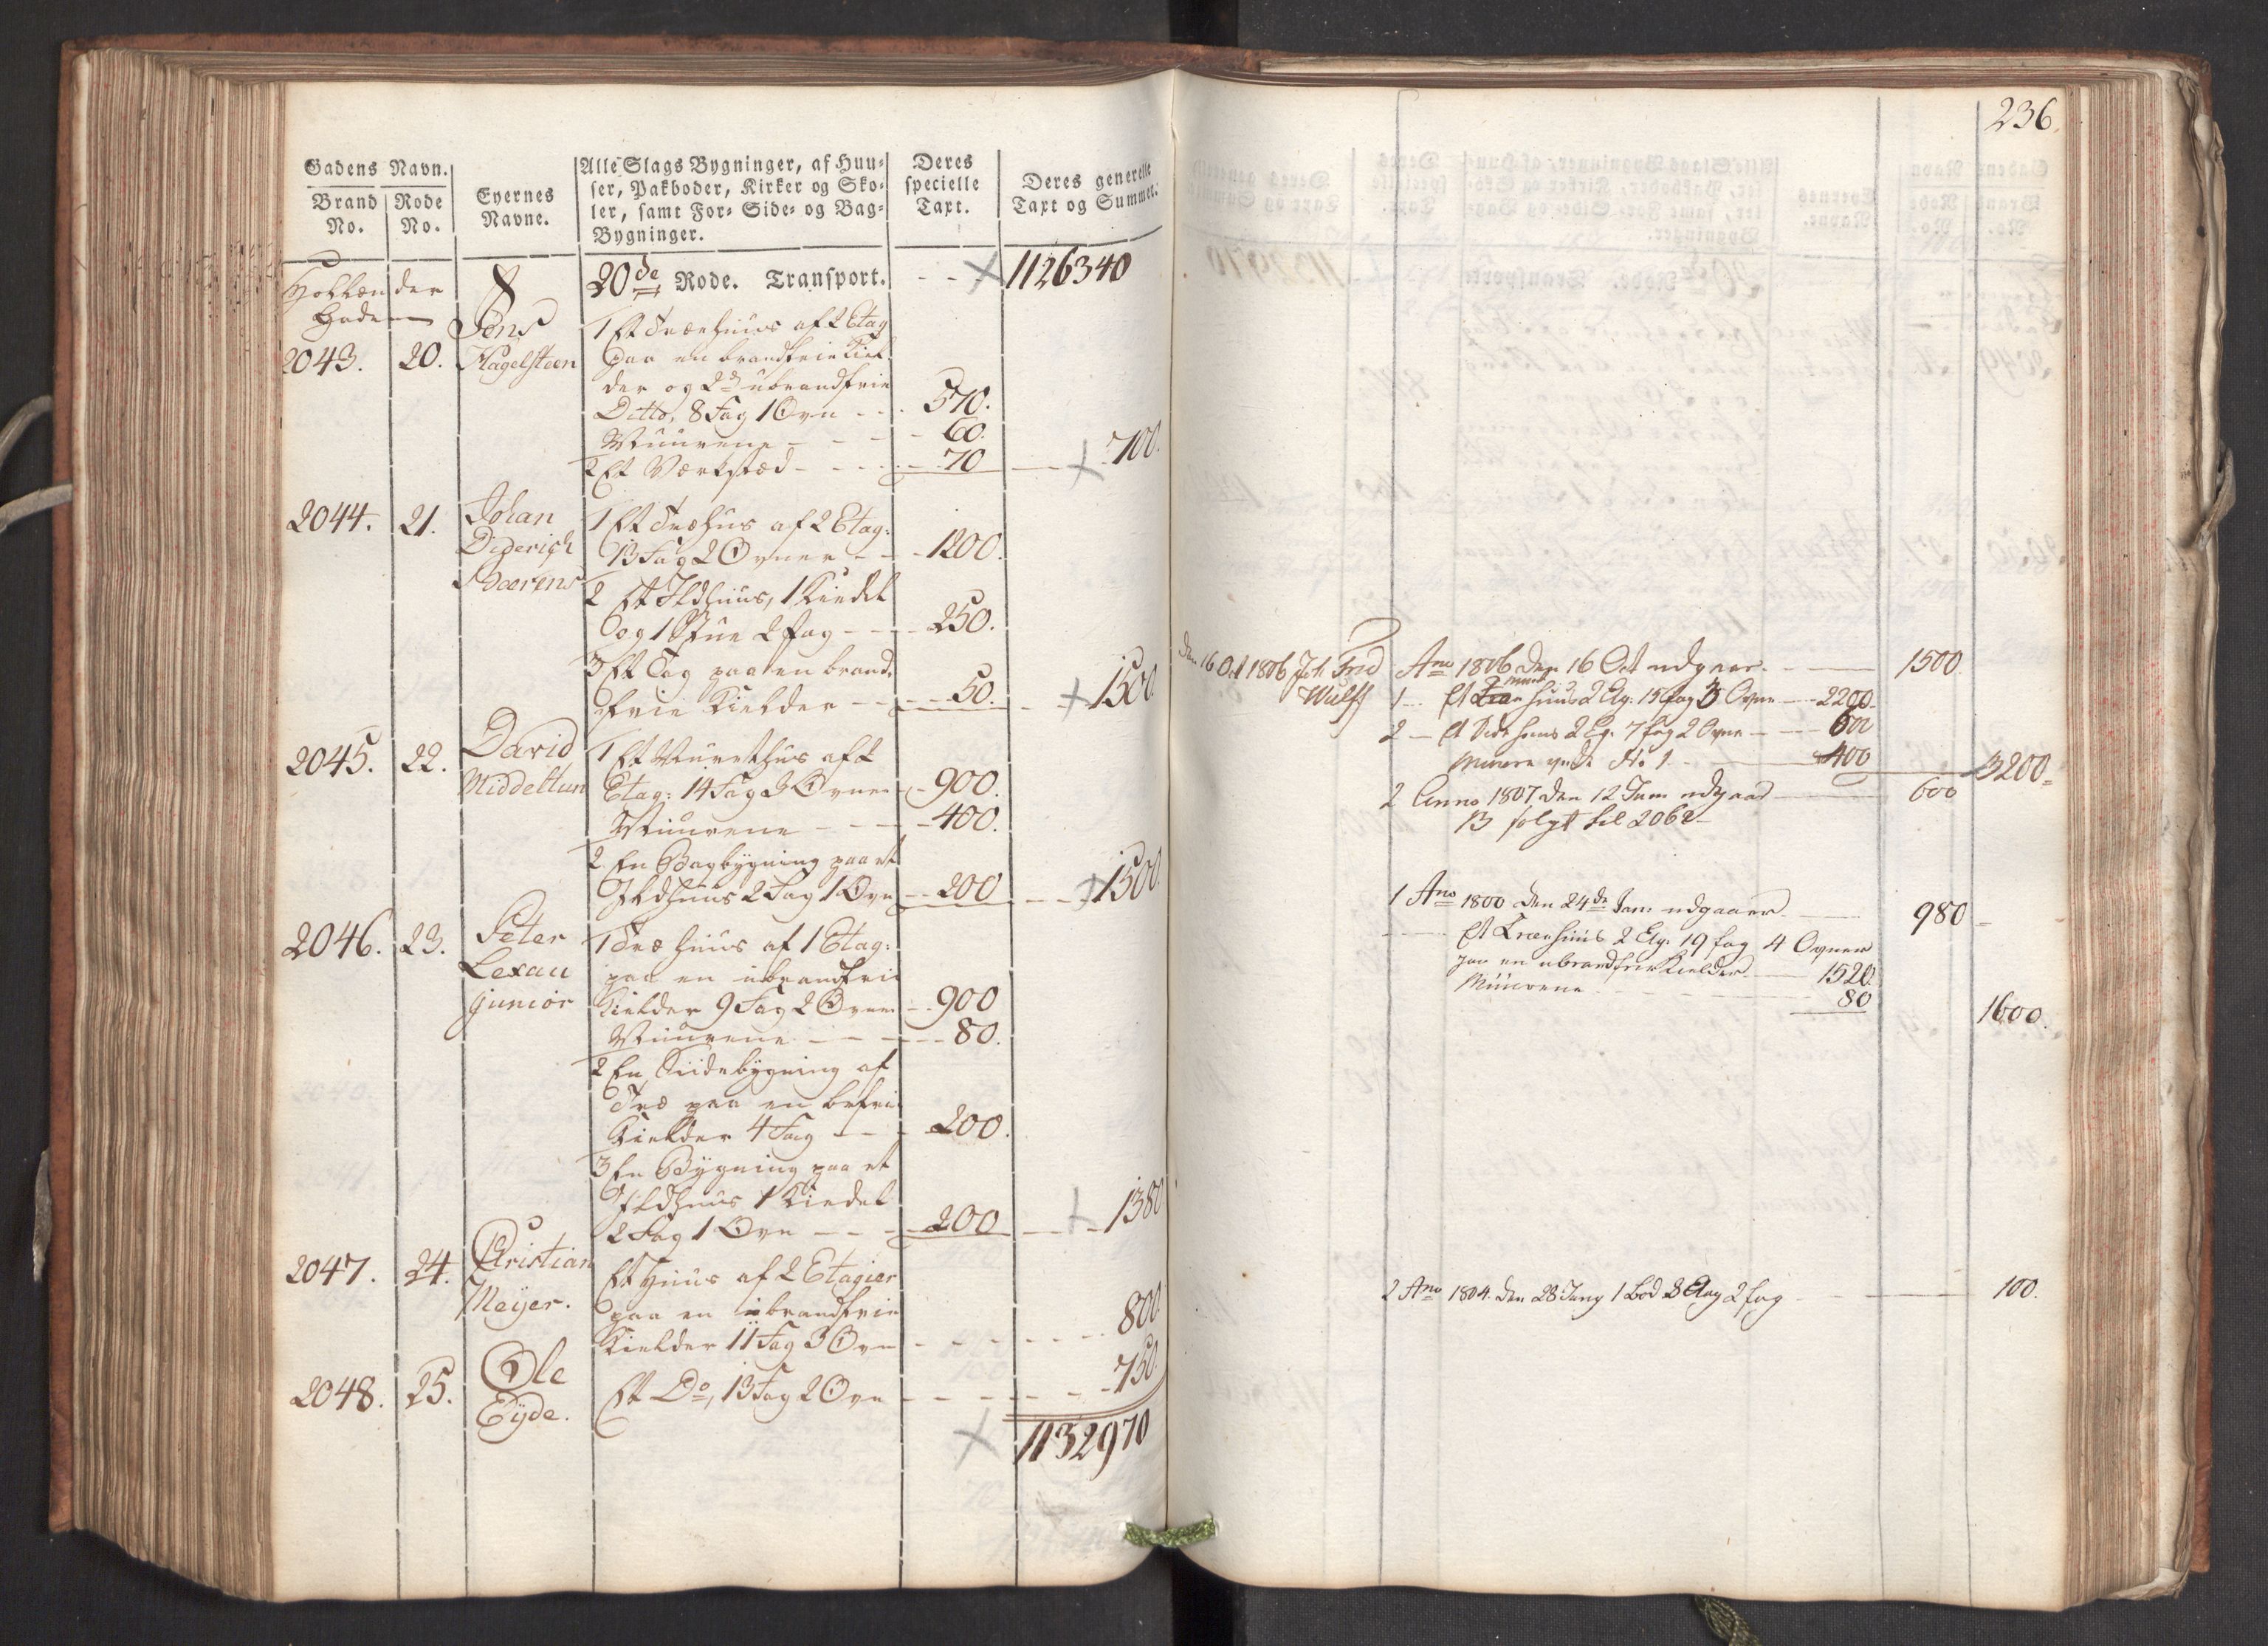 Gadens Navn.
Brand No.
Rode No.
Eyernes Navne.
Alle Slags Bygninger, af Huu-
ser, Pakboder, Kirker og Sko-
ler, samt For- Side- og Bag-
Bygninger.
Deres
specielle
Taxt.
Deres generelle
Taxt og Summer.
Hollænder 20de Rode. Transport. - - 1126340
Gaden
Jens 1 Et Træehuus af 2 Etag
2043. 20. Hagelsteen paa en brandfrie Kiel
der og 2 ubrandfrie
Ditto, 8 Fag 1 Ovn - - 570.
Muurene - - - 60.
2 Et Værksted - - - 70 - 700.
2044. 21. Johan 1 Et Træhus af 2 Etag:
Diderich 13 Fag 2 Ovner - - 1200.
Behrens
2 Et Ildhuus, 1 Kiedel
og 1 Stue 2 Fag - - 250.
3 Et Tag paa en brand-
frie Kielder - - 50. - 1500
2045. 22. David 1 Et Muurethus af 2
Middeltun Etag: 14 Fag 3 Ovner - 900.
Muurene - - - 400.
2 En Bagbygning paa et
Ildhuus 2 Fag 1 Ovn - 200 - 1500
2046. 23. Peter 1 Træ huus af 1 Etag:
Lexau paa en ubrandfrie
junior Kielder 9 Fag 2 Ovner - 900
Muurene - - - 80.
2 En Siidebygning af
Træ paa en brfrie
Kielder 4 Fag - - 200.
3 En Bygning paa et
Ildhuus 1 Kiedel
2 Fag 1 Ovn - - 200 - 1380
2047. 24. Christian Et Huus af 2 Etagier
Meyer. paa en ubrandfrie
Kielder 11 Fag 3 Ovn - - - 800
2048. 25. Ole Eyde. Et Do, 13 Fag 2 Ovn - - - 750.
1132970
236.
den 16 Oct 1806 Joh Frid Wulff
Ano 1806 den 16 Oct udgaar. - 1500
1 - Et Muur huus 2 Etg. 15 fag 3 Ovne - 2200
2 - Et Side huus 2 Eg. 7 fag 2 Ovne - 600
Murene - No 1 - 400 3200
2 Anno 1807 den 12 Juni udgaar - 600
B solgt til 2062
1 Ano 1800 den 24de Jan: udgaaer - 980
Et Træehuus 2 Etg. 19 fag 4 Ovner
paa en ubrandfrie Kielder - 1520.
Muurene - 80
1600.
2 Ano 1804. den 28 Juny 1 bod 2 Etag 2 fag - 100.